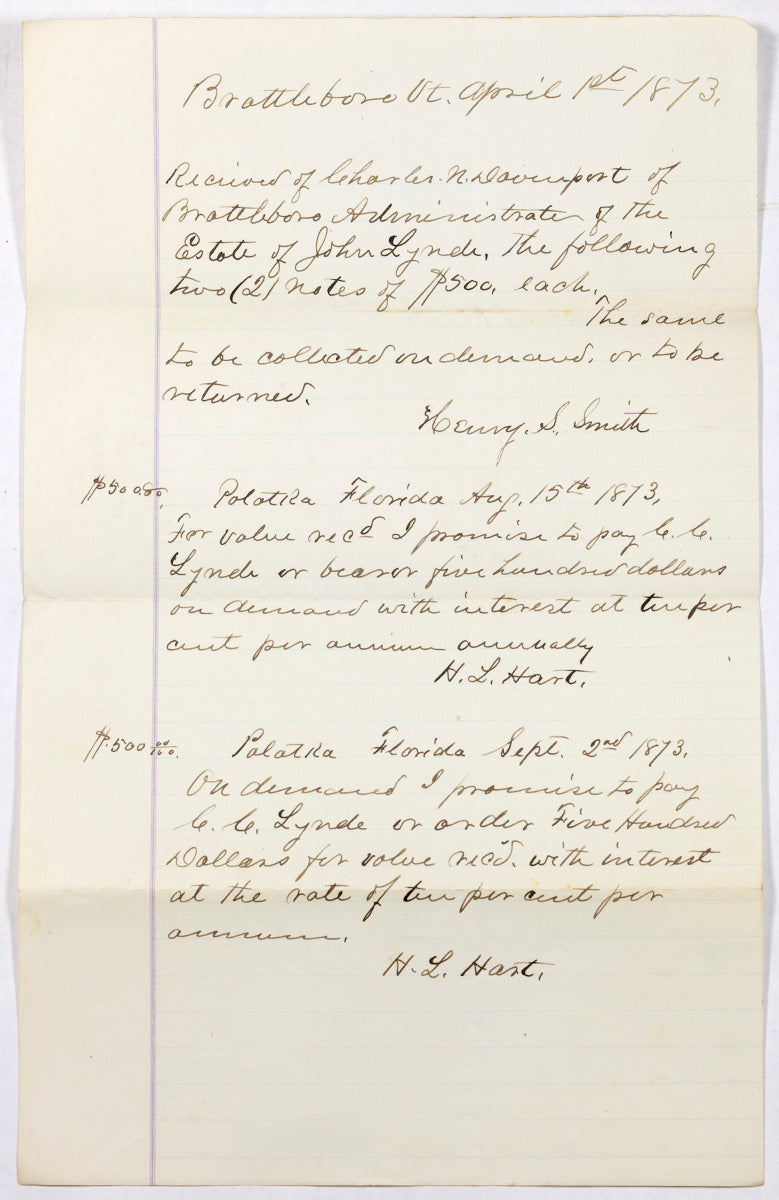 Brattleboro Vt. April 1st 1873.
Recieved of Charles. N. Davenport of
Brattleboro Administrater of the
Estate of John Lynde. The following
two (2) notes of $500. each.
The same
to be collected on demand. or to be
returned.
Henry. S. Smith
$500.00. Polatka Florida Aug. 15th 1873,
For value recd I promise to pay C. C.
Lynde or bearor five hundred dollars
on demand with interest at ten per
cent per annum annually
H. L. Hart.
$.500 00/100. Polatka Florida Sept. 2nd 1873.
On demand I promise to pay
C. C. Lynde or order Five Hundred
Dollars for value rec'd. with interest
at the rate of ten per cent per
annum.
H. L. Hart.